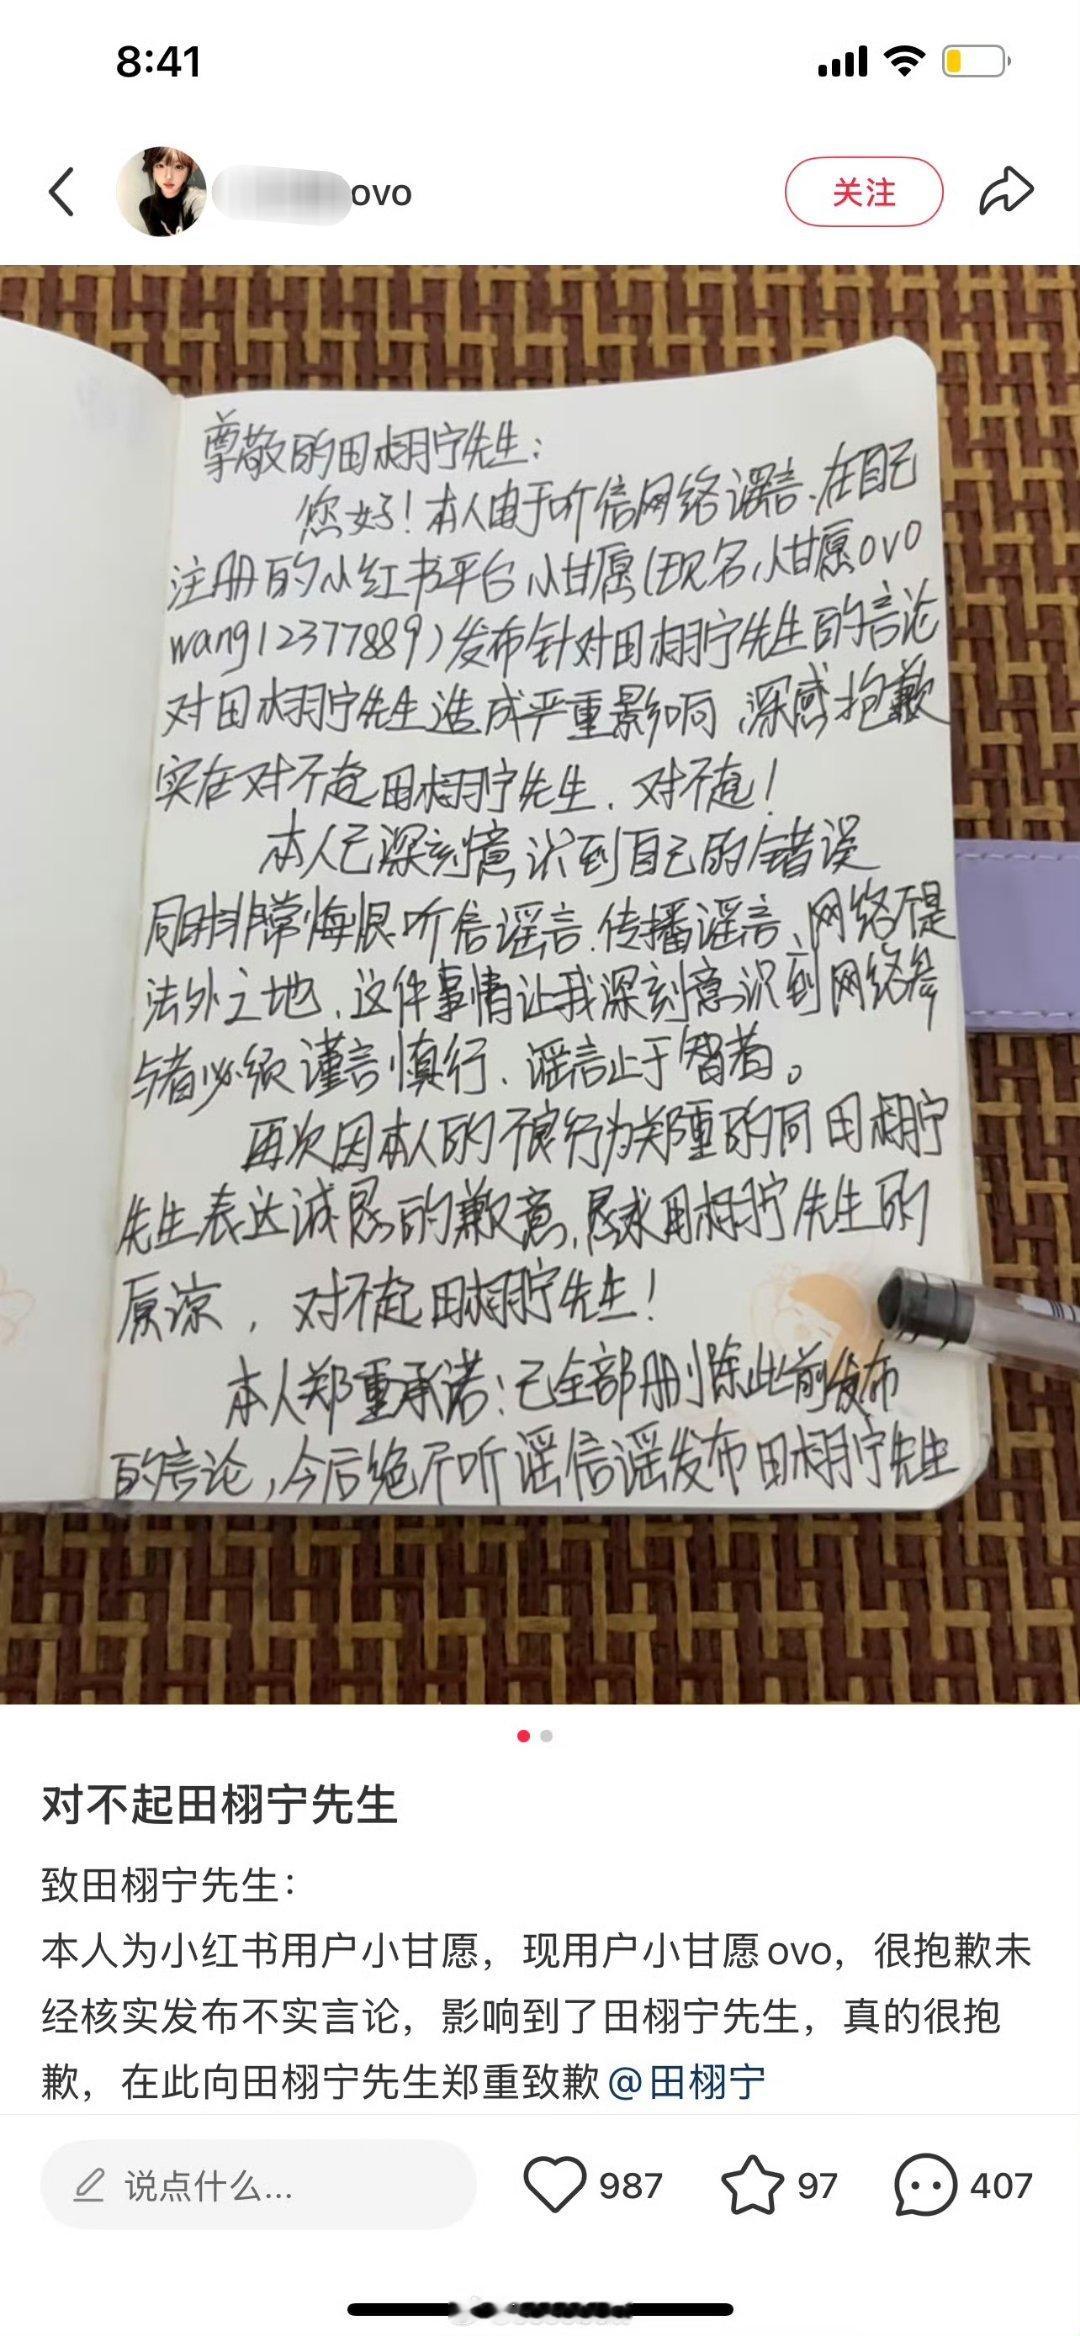 8:41
ovo
关注
尊敬的田栩宁先生：
您好！本人由于听信网络谣言、在自己
注册的小红书平台小甘愿(现名小甘愿ovo
wang12377889)发布针对田栩宁先生的言论
对田栩宁先生造成严重影响，深感抱歉
实在对不起田栩宁先生、对不起！
本人已深刻意识到自己的错误
同时非常悔恨听信谣言、传播谣言、网络不是
法外之地、这件事情让我深刻意识到网络参
与者必须谨言慎行、谣言止于智者。
再次因本人的不良行为郑重的向田栩宁
先生表达诚恳的歉意，恳求田栩宁先生的
原谅，对不起田栩宁先生！
本人郑重承诺：已全部删除此前发布
的言论，今后绝不听谣信谣发布田栩宁先生
对不起田栩宁先生
致田栩宁先生：
本人为小红书用户小甘愿，现用户小甘愿ovo，很抱歉未
经核实发布不实言论，影响到了田栩宁先生，真的很抱
歉，在此向田栩宁先生郑重致歉@田栩宁
说点什么...
987
97
407